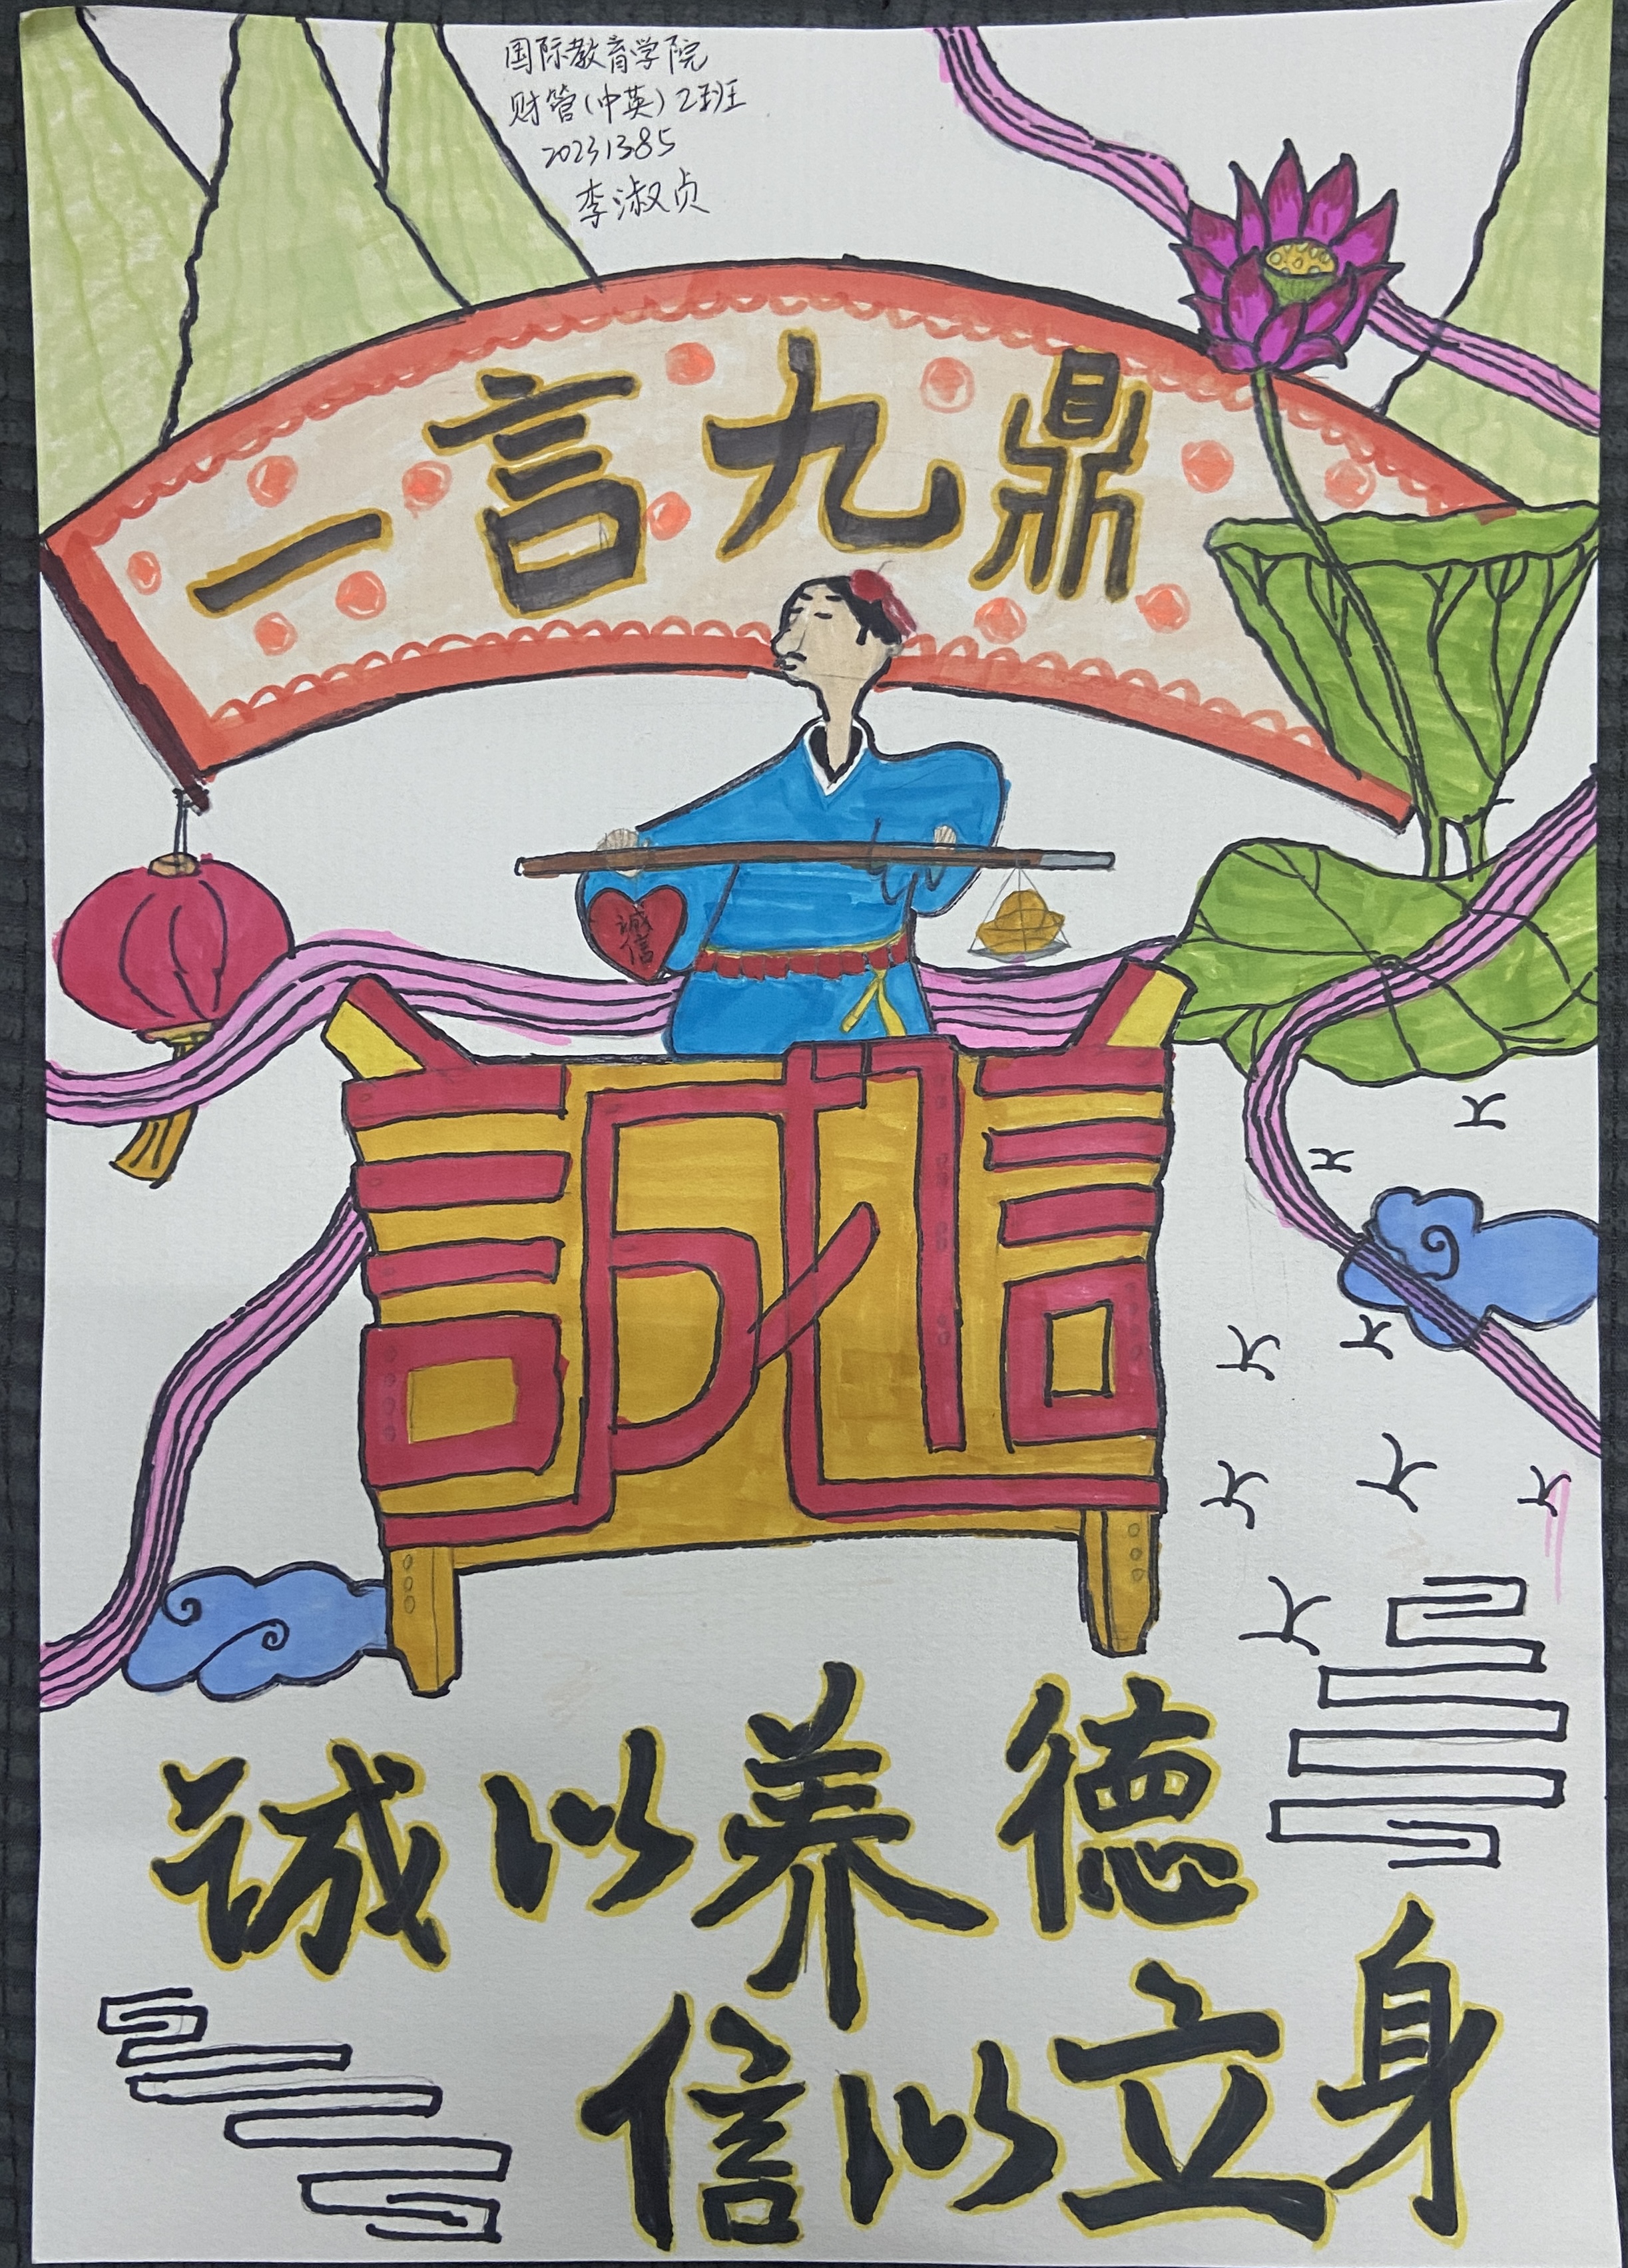 国际教育学院
财管(中英)2班
20231385
李淑贞
一言九鼎
诚信
誠信
诚以养德
信以立身